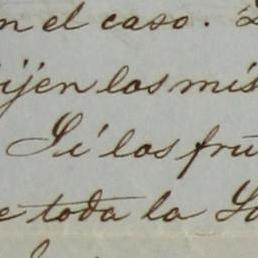 n el caso.
ijen los mis
Si los fru
e toda la